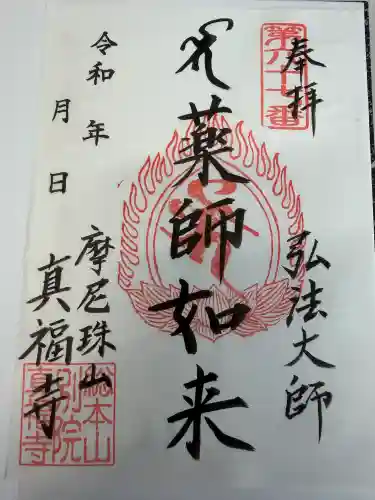 第六十一番
奉拝
弘法大師
薬師如来
令和 年
月 日
摩尼珠山
真福寺
総本山
別院
真福寺